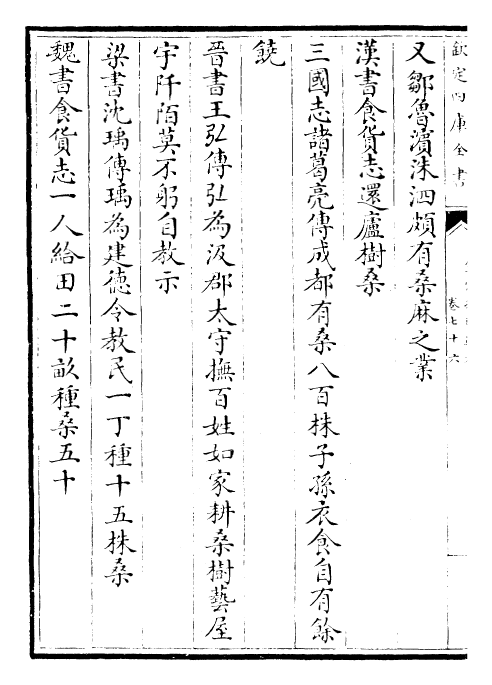 欽定四庫全書
卷七十六
又鄒魯濵洙泗頗有桑麻之業
漢書食貨志還廬樹桑
三國志諸葛亮傳成都有桑八百株子孫衣食自有餘
饒
晉書王弘傳弘為汲郡太守撫百姓如家耕桑樹藝屋
宇阡陌莫不躬自教示
梁書沈瑀傳瑀為建德令教民一丁種十五株桑
魏書食貨志一人給田二十畝種桑五十